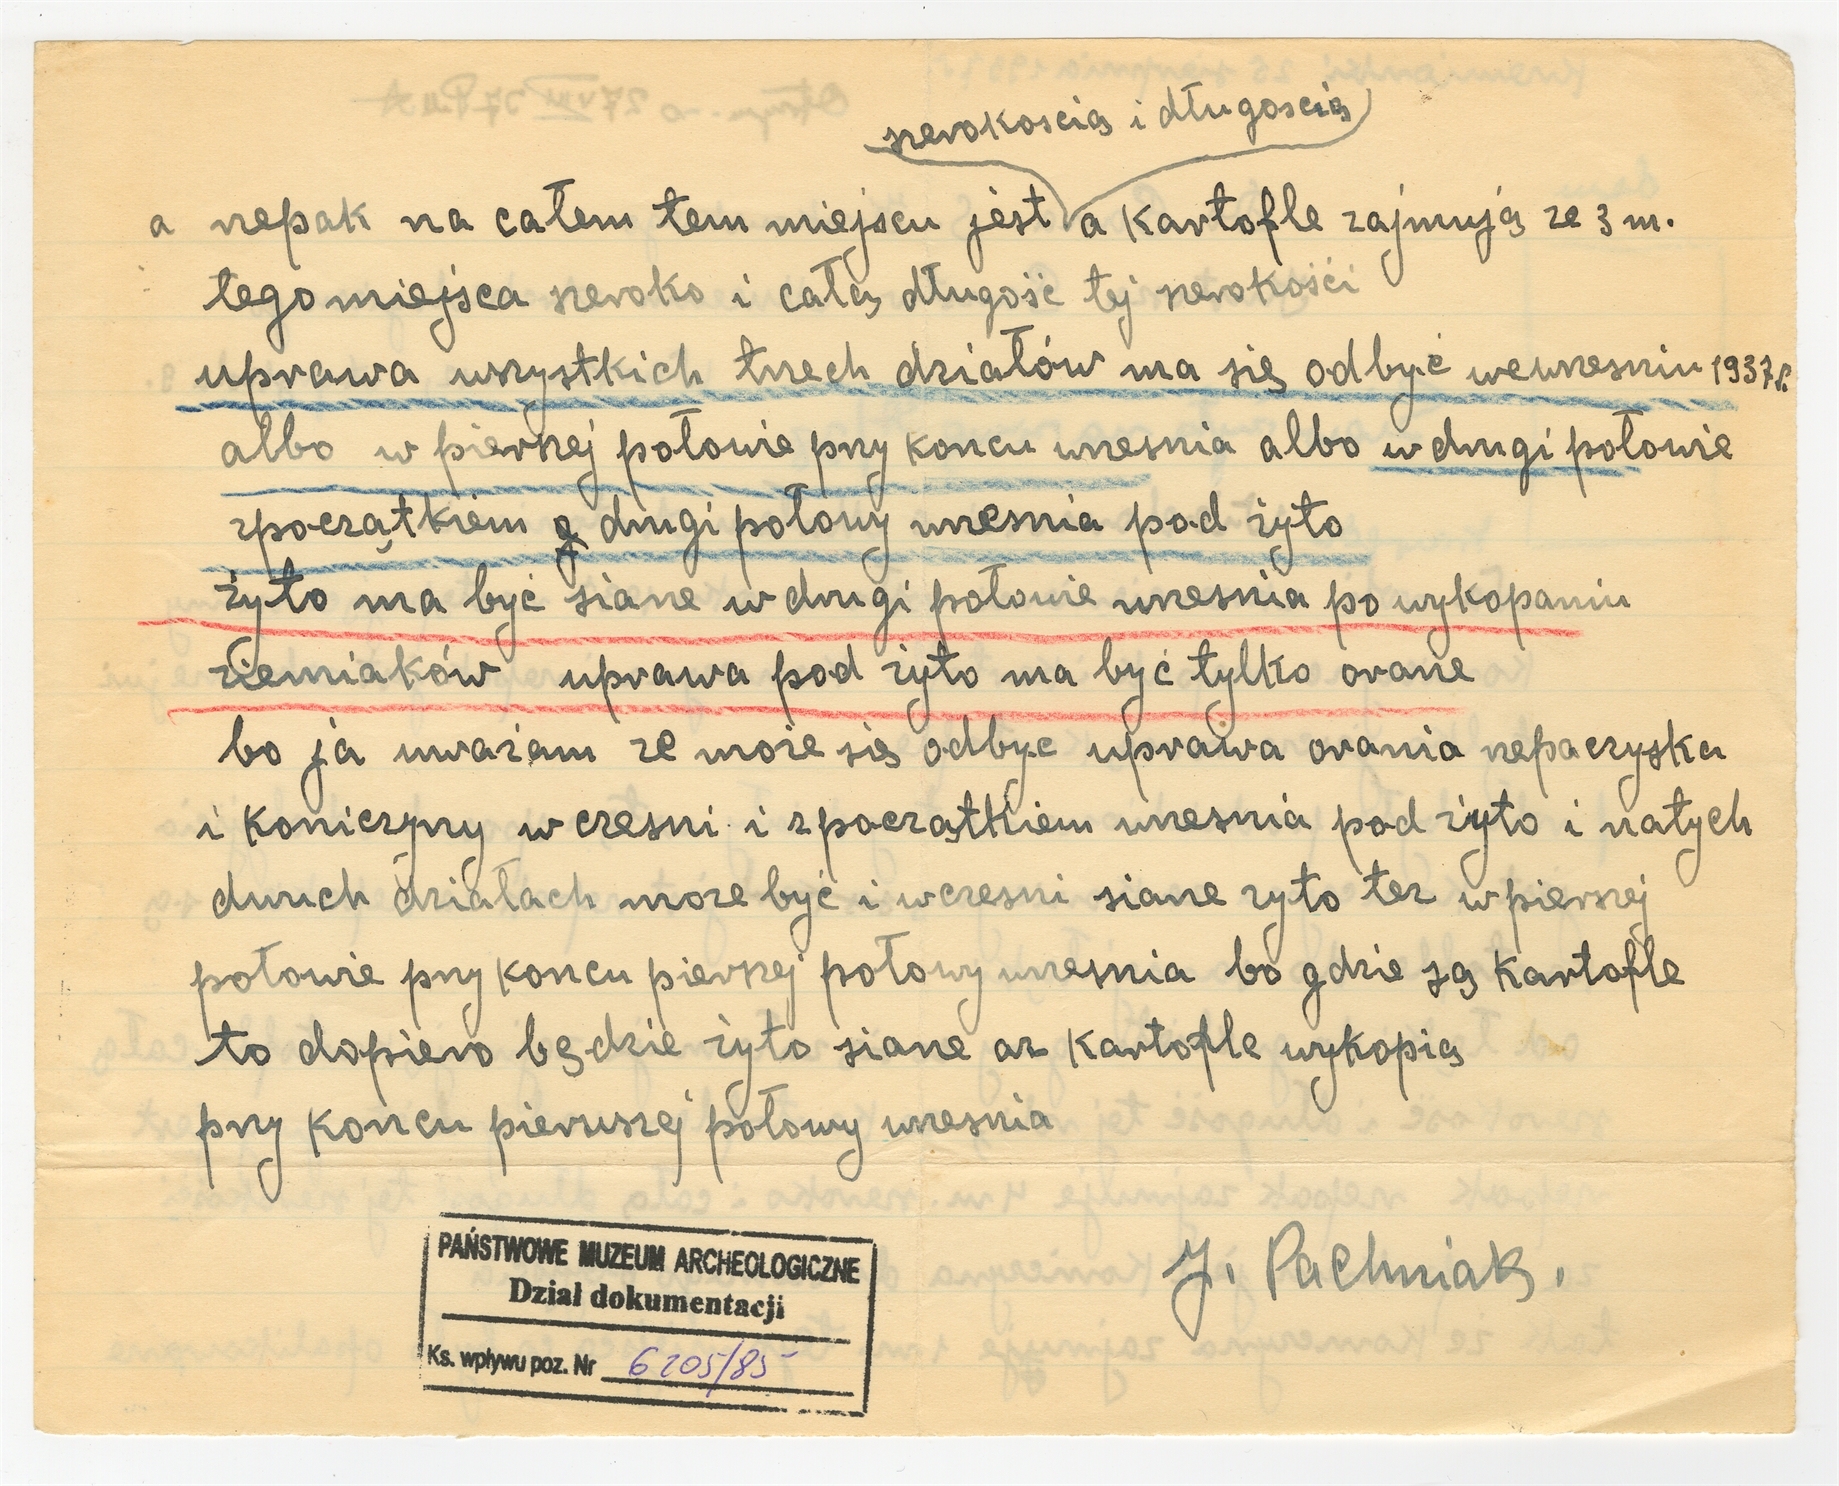 szerokoscią i długoscią
a rzepak na całem tem miejscu jest a kartofle zajmują ze 3 m.
tego miejsca szeroko i całą długość tej szerokości
uprawa wszystkich trzech działów ma się odbyć we wrzesniu 1937 r.
albo w pierszej połowie przy koncu wrzesnia albo w drugi połowie
zpoczątkiem drugi połowy wrzesnia pod żyto
żyto ma być siane w drugi połowie wrzesnia po wykopaniu
ziemiaków uprawa pod żyto ma być tylko orane
bo ja uważam ze może się odbyc uprawa orania rzepaczyska
i koniczyny w czesni i zpoczątkiem wrzesnia pod żyto i natych
dwuch działach moze być i wczesni siane zyto tez w pierszej
połowie przy koncu pierszej połowy wrzesnia bo gdzie są kartofle
to dopiero będzie żyto siane az kartofle wykopią
przy koncu pierwszej połowy wrzesnia
J. Pachniak.
PAŃSTWOWE MUZEUM ARCHEOLOGICZNE
Dział dokumentacji
Ks. wpływu poz. Nr 6205/85